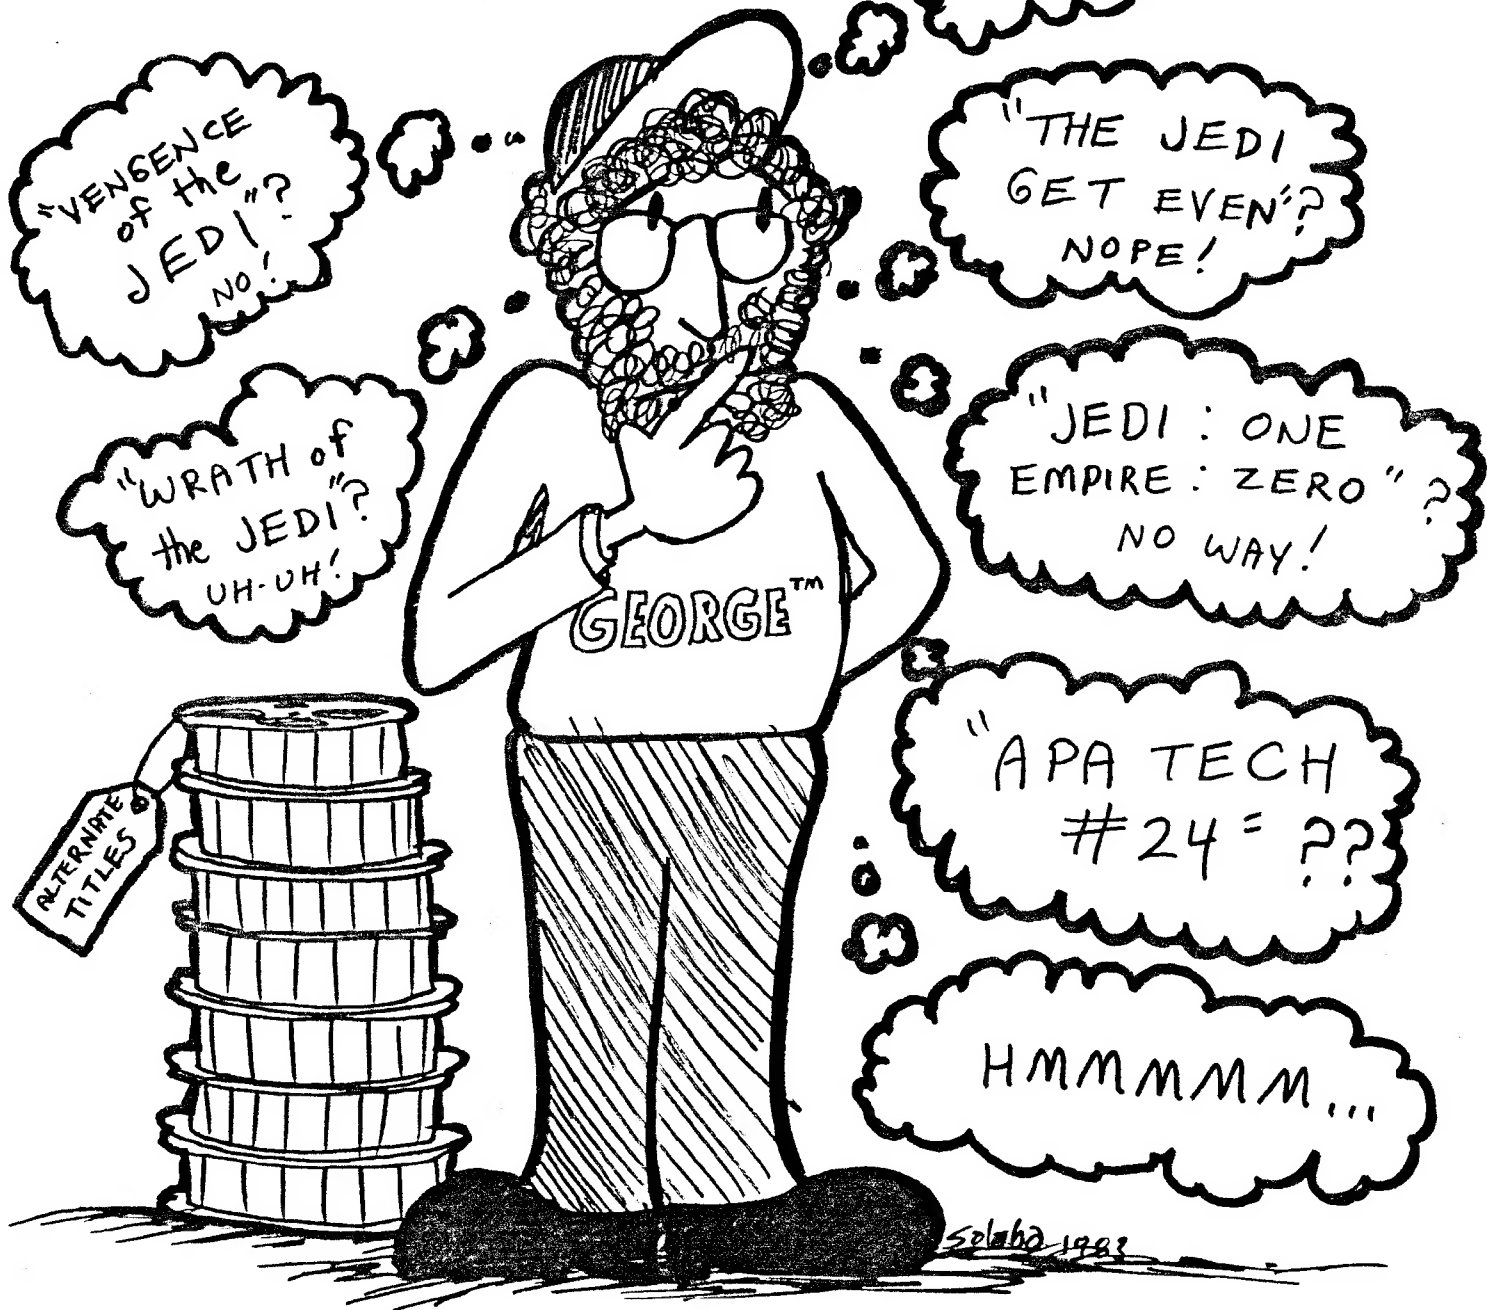 "VENGENCE
of the
JEDI"?
NO!
"WRATH of
the JEDI"?
UH-UH!
"THE JEDI
GET EVEN"?
NOPE!
"JEDI : ONE
EMPIRE : ZERO"?
NO WAY!
"APA TECH
#24 = ??
HMMMMM...
GEORGE™
ALTERNATE
TITLES
1983